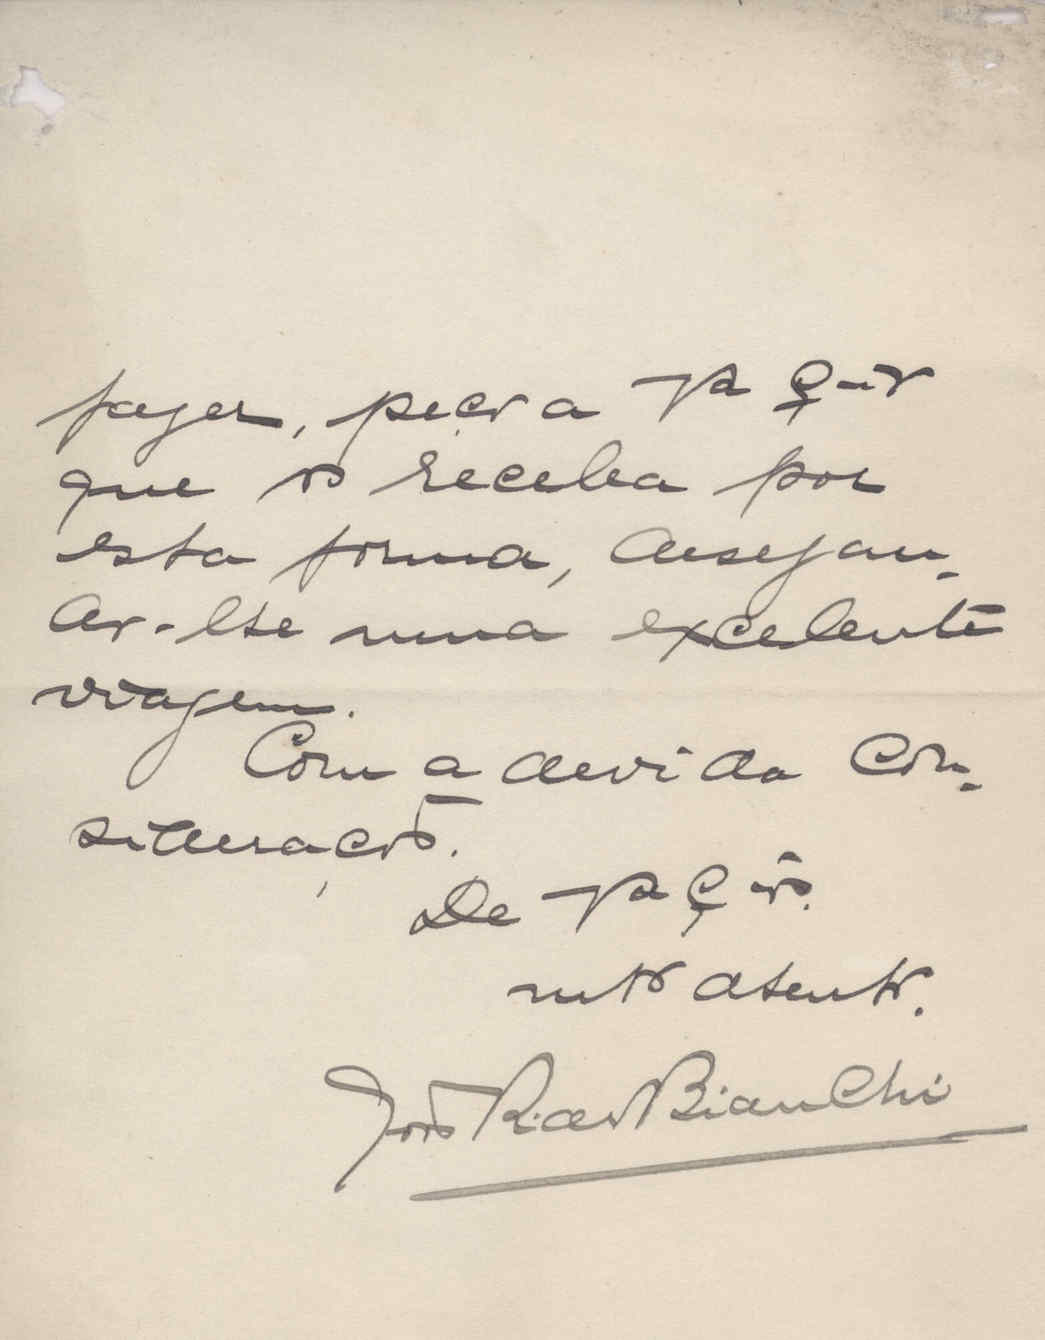 fazer, peço a Vª Exª
que o receba por
esta forma, desejan-
do-lhe uma excelente
viagem.
Com a devida con-
sideração.
De Vª Exª
mto atento.
João Bianchi